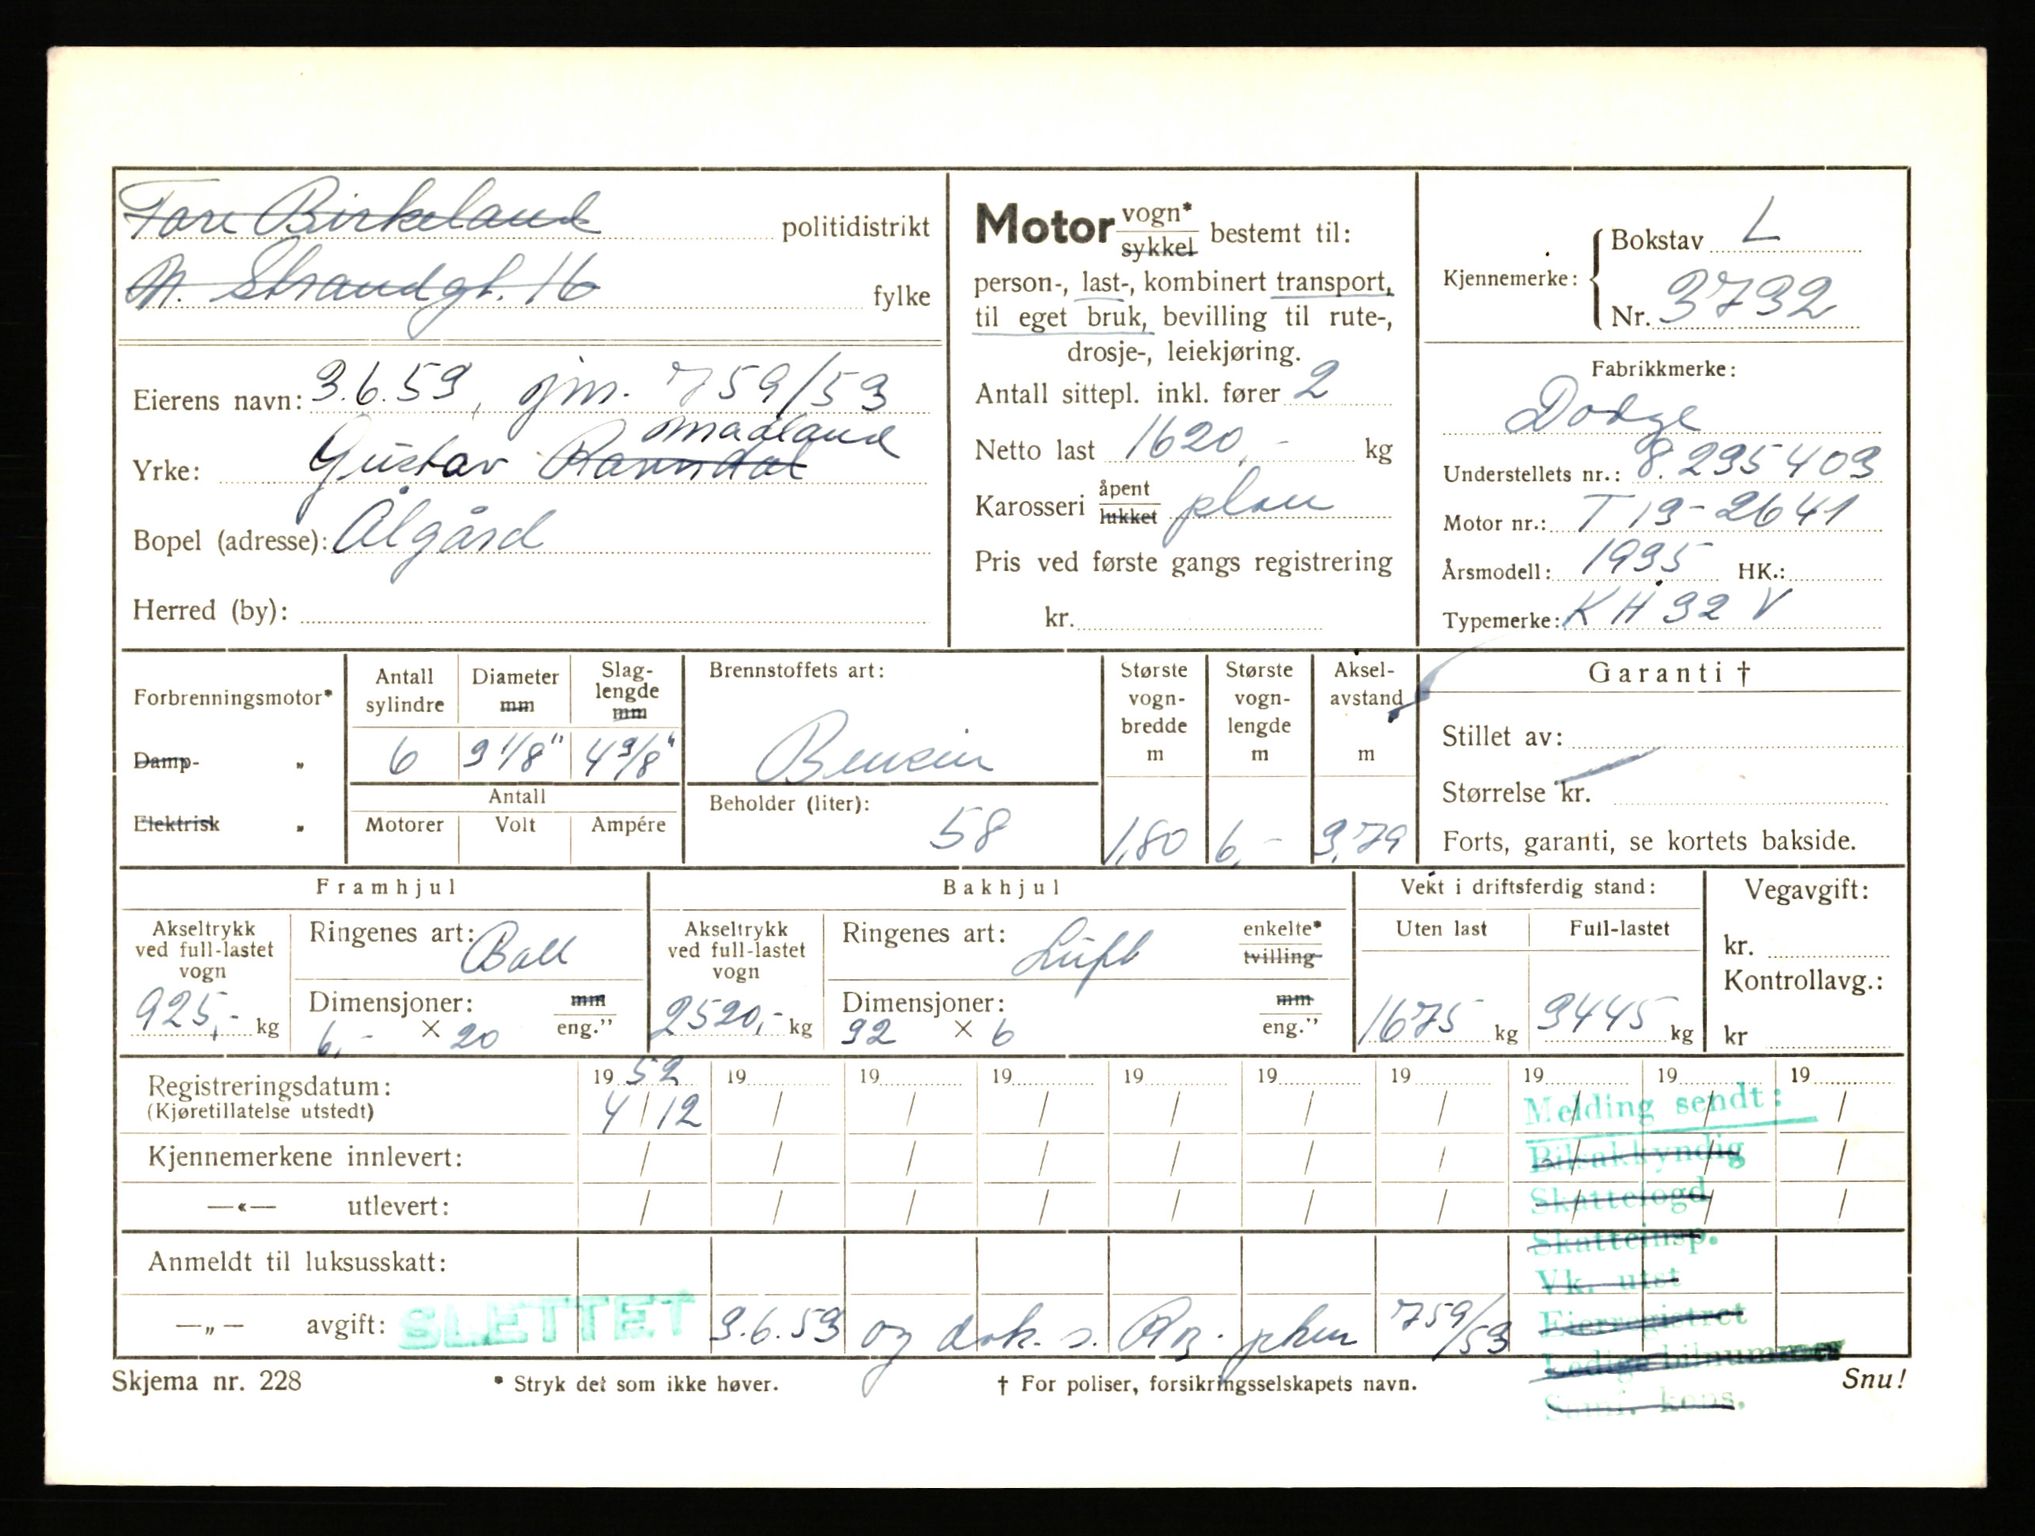 Tore Birkeland politidistrikt
N. Strandgt. 16 fylke
Eierens navn: 3.6.53, gjm. 759/53
Madland
Yrke: Gustav Ravndal
Bopel (adresse): Ålgård
Herred (by):
Motor vogn* sykkel bestemt til:
person-, last-, kombinert transport,
til eget bruk, bevilling til rute-,
drosje-, leiekjøring.
Antall sittepl. inkl. fører 2
Netto last 1620,- kg
Karosseri åpent lukket plan
Pris ved første gangs registrering
kr.
Kjennemerke: Bokstav L
Nr. 3732
Fabrikkmerke:
Dodge
Understellets nr.: 8.235403
Motor nr.: T 13-2641
Årsmodell: 1935 HK.:
Typemerke: KH 32 V
Forbrenningsmotor*
Damp- "
Elektrisk "
Antall sylindre
Diameter mm
Slag-lengde mm
6 3 1/8" 4 3/8"
Antall
Motorer Volt Ampére
Brennstoffets art:
Bensin
Beholder (liter):
58
Største vogn-bredde m
1,80
Største vogn-lengde m
6,-
Aksel-avstand m
3,79
Garanti †
Stillet av:
Størrelse kr.
Forts, garanti, se kortets bakside.
Framhjul
Akseltrykk ved full-lastet vogn
925,- kg
Ringenes art: Ball
Dimensjoner: mm
6,- × 20 eng."
Bakhjul
Akseltrykk ved full-lastet vogn
2520,- kg
Ringenes art: Luft enkelte* tvilling
Dimensjoner: mm
32 × 6 eng."
Vekt i driftsferdig stand:
Uten last Full-lastet
1675 kg 3445 kg
Vegavgift:
kr.
Kontrollavg.:
kr
Registreringsdatum: 19 52 19 19 19 19 19 19 19 19 19
(Kjøretillatelse utstedt) 4/12 / / / / / / / / /
Kjennemerkene innlevert: / / / / / / / / / /
—«— utlevert: / / / / / / / / / /
Anmeldt til luksusskatt:
—„— avgift: SLETTET 3.6.53 og dok. s. Rog. phm 759/53
Melding sendt:
Bilsakkyndig
Skattefogd
Skatteinsp.
Vk. utst
Eierregistret
Ledige bilnummer
Saml. kons.
Skjema nr. 228
* Stryk det som ikke høver.
† For poliser, forsikringsselskapets navn.
Snu!